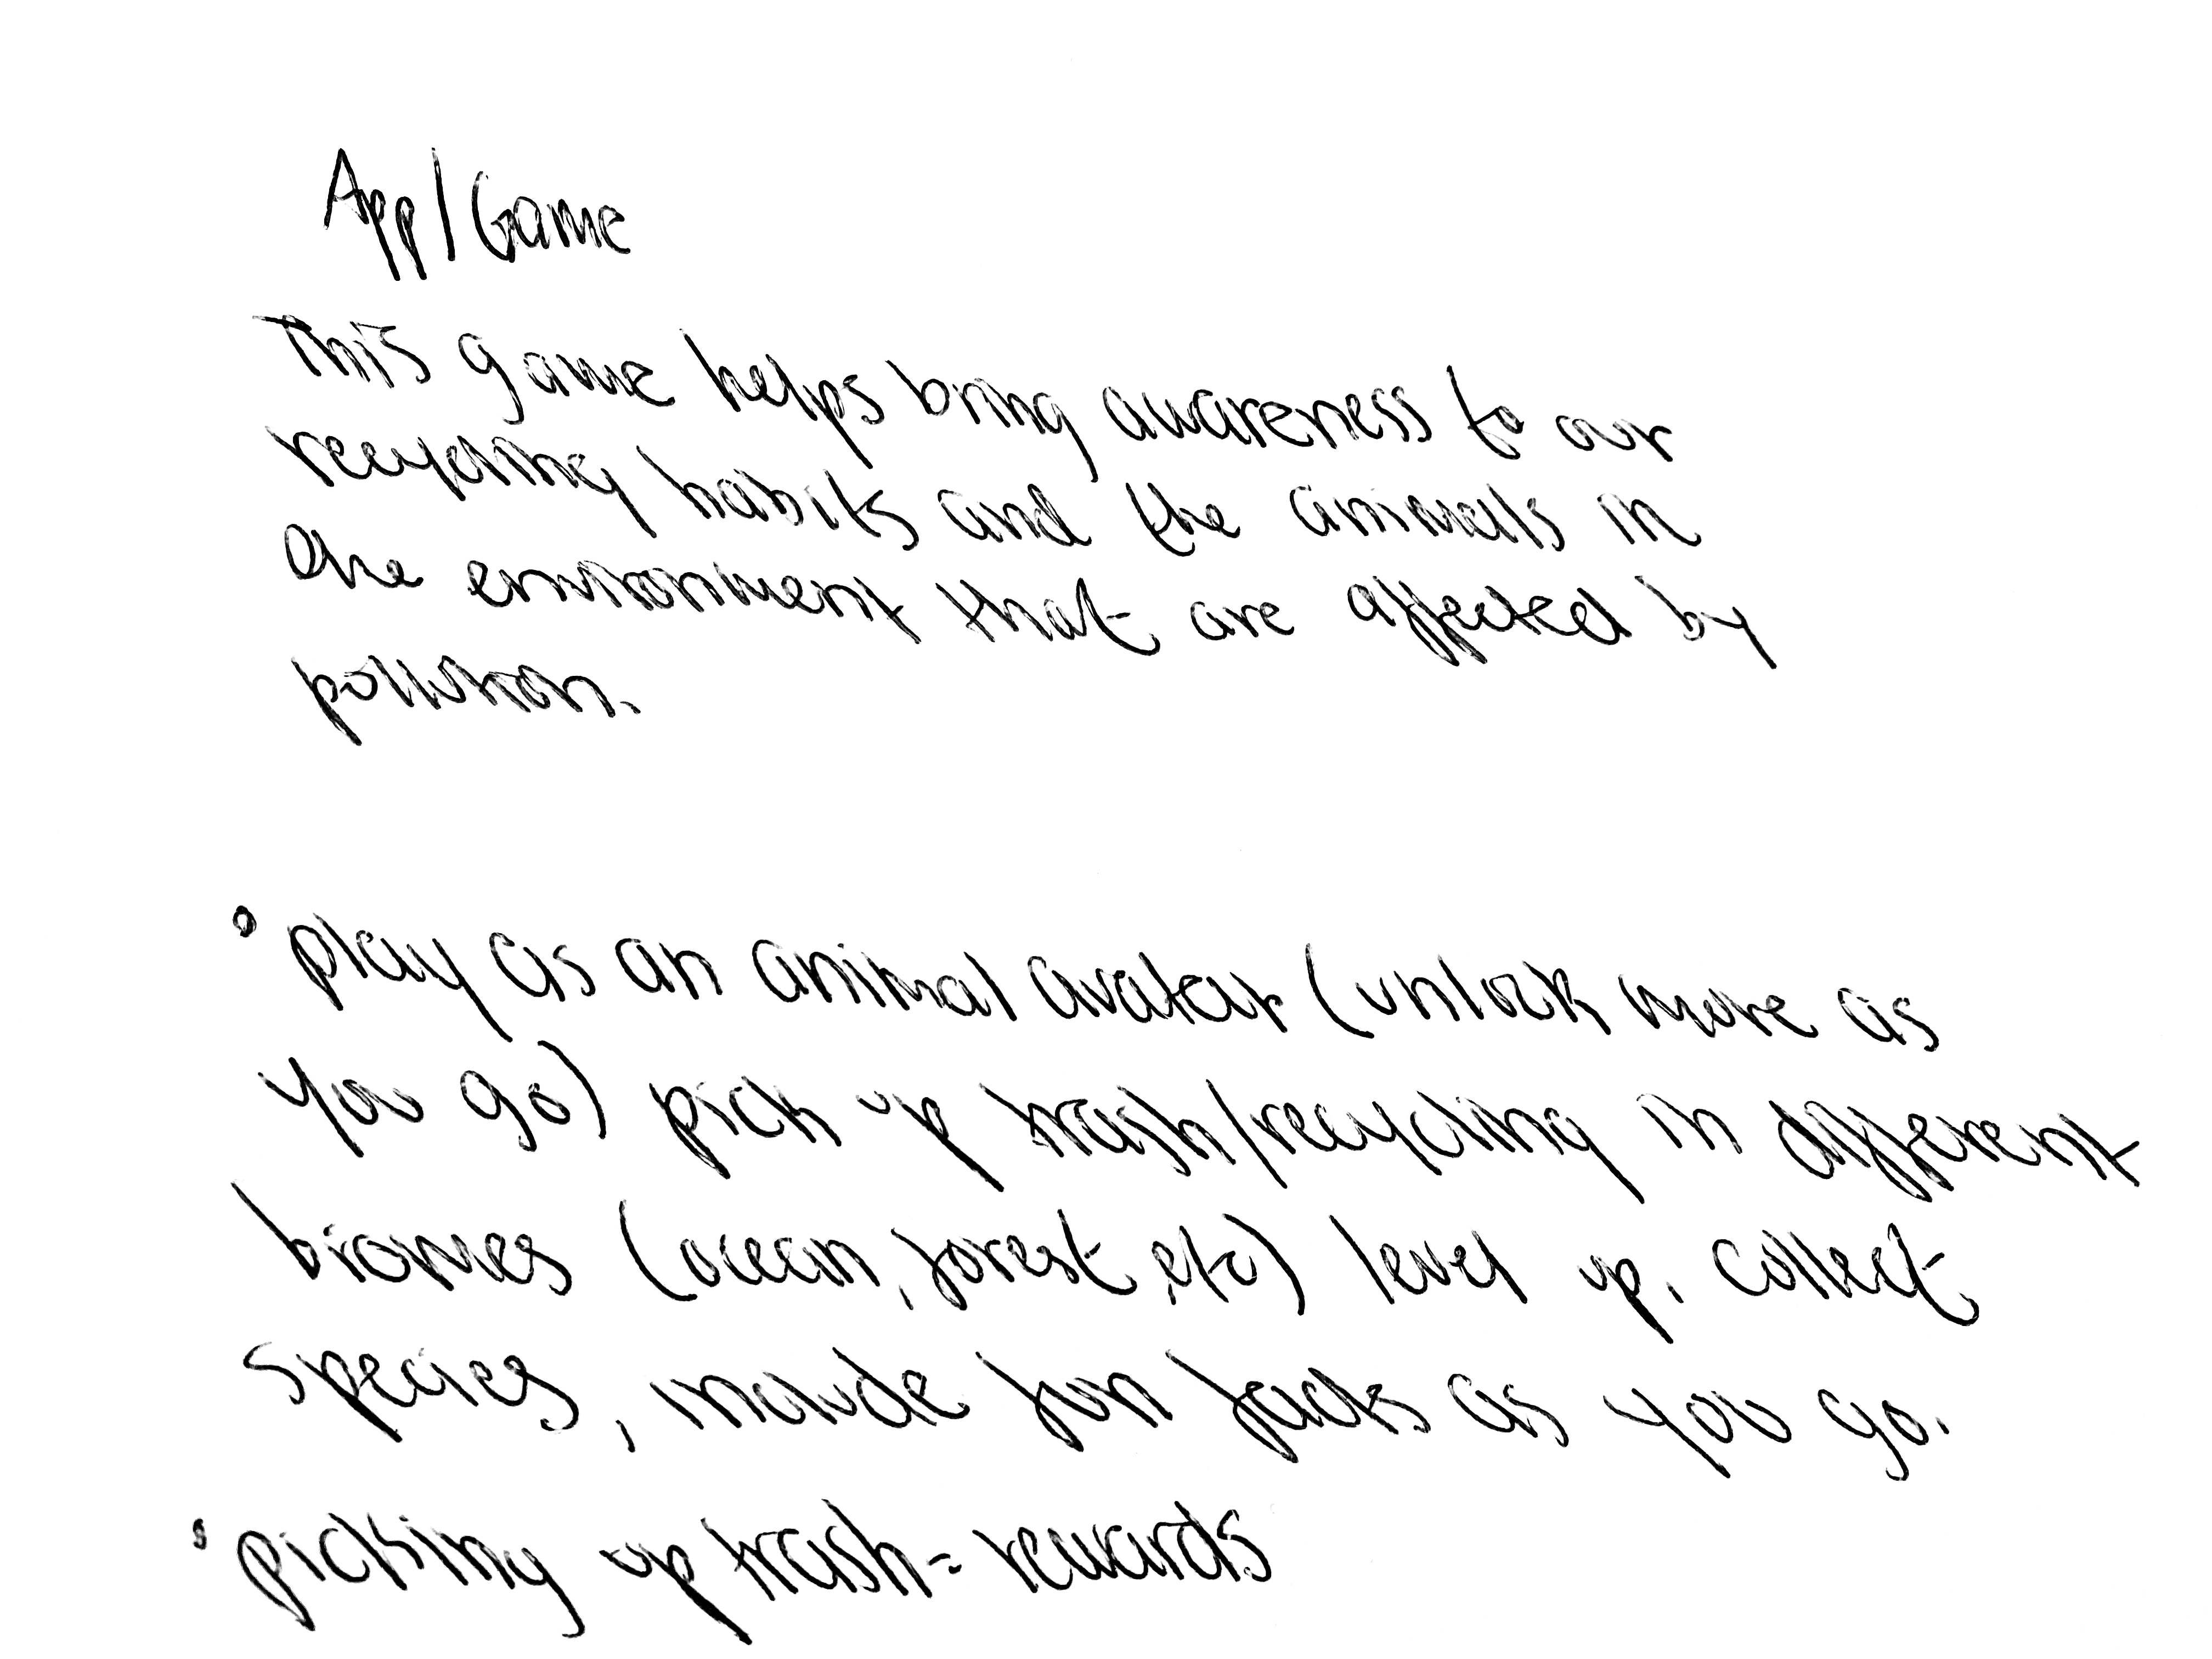 App/Game
This game helps bring awareness to our
recycling habits and the animals in
the environment that are affected by
pollution.
• play as an animal avatar (unlock more as
you go) pick up trash/recycling in different
biomes (ocean, forest etc) level up. collect
species, include fun facts as you go.
• picking up trash = rewards